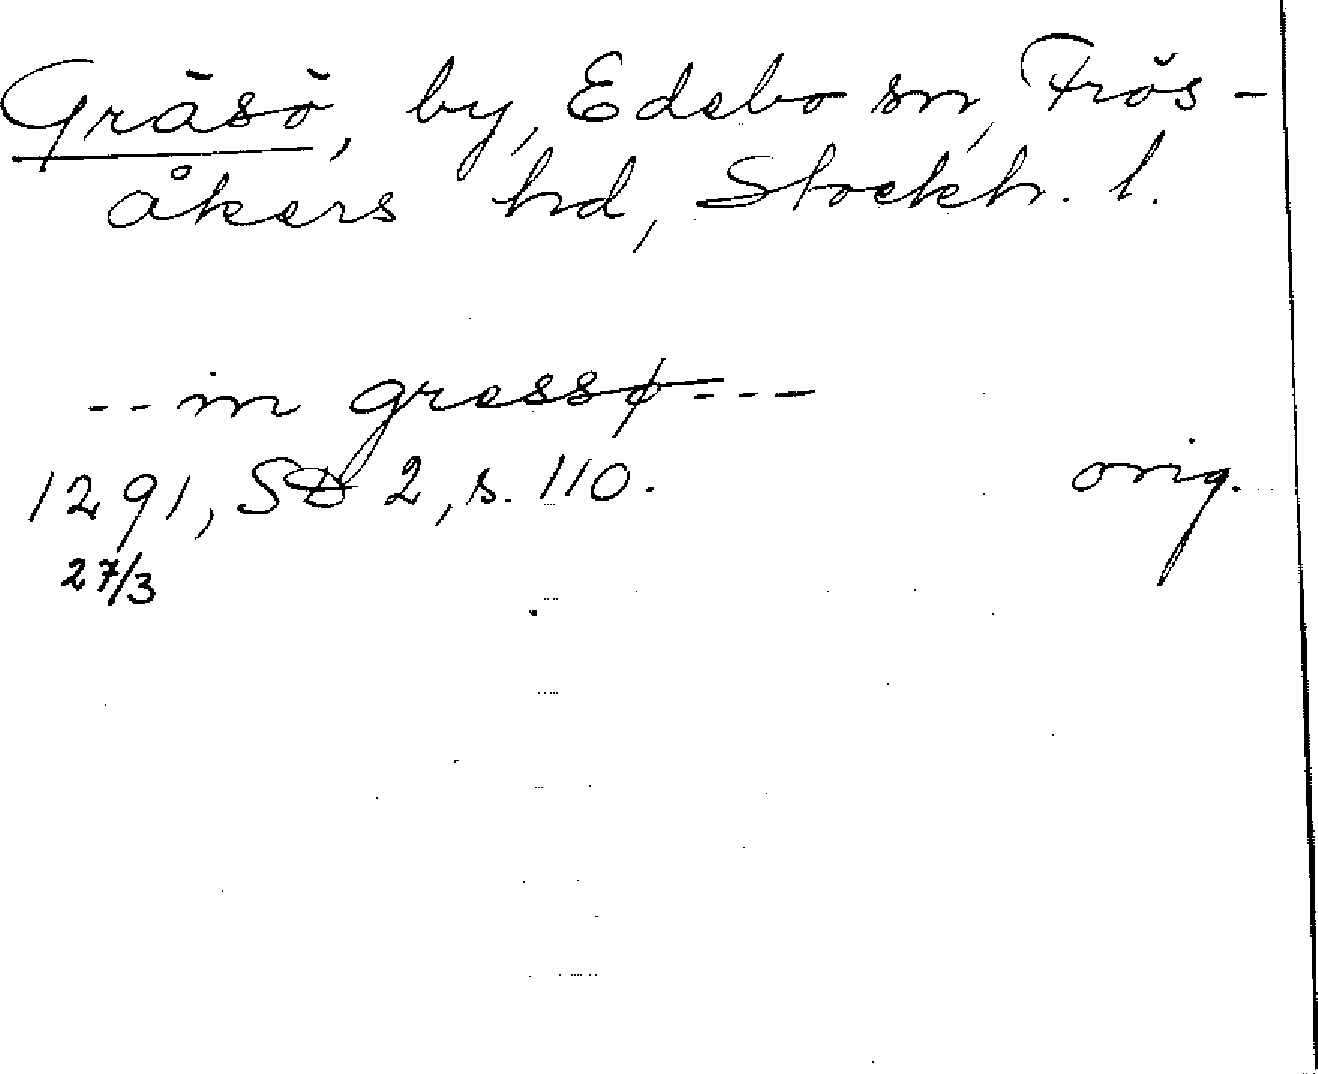 Gräsö, by, Edebo sn, Frös-
åkers hd, Stockh. l.
--in gressø---
1291, SD 2, s. 110. orig.
27/3